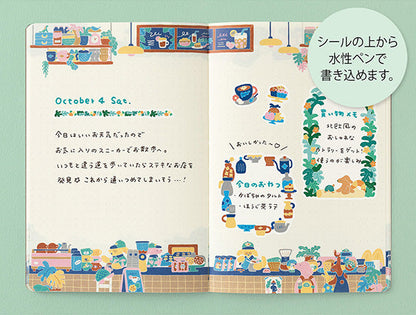 シールの上から
水性ペンで
書き込めます。
October 4 Sat.
今日はいいお天気だったので
お気に入りのスニーカーでお散歩。
いつもと違う道を歩いていたらステキなお店を
発見♪ これから通いつめてしまいそう…!
おいしかった〜
今日のおやつ
・かぼちゃのタルト
・ほうじ茶ラテ
買い物メモ
北欧風の
おしゃれな
カトラリーをゲット!
使うのが楽しみ